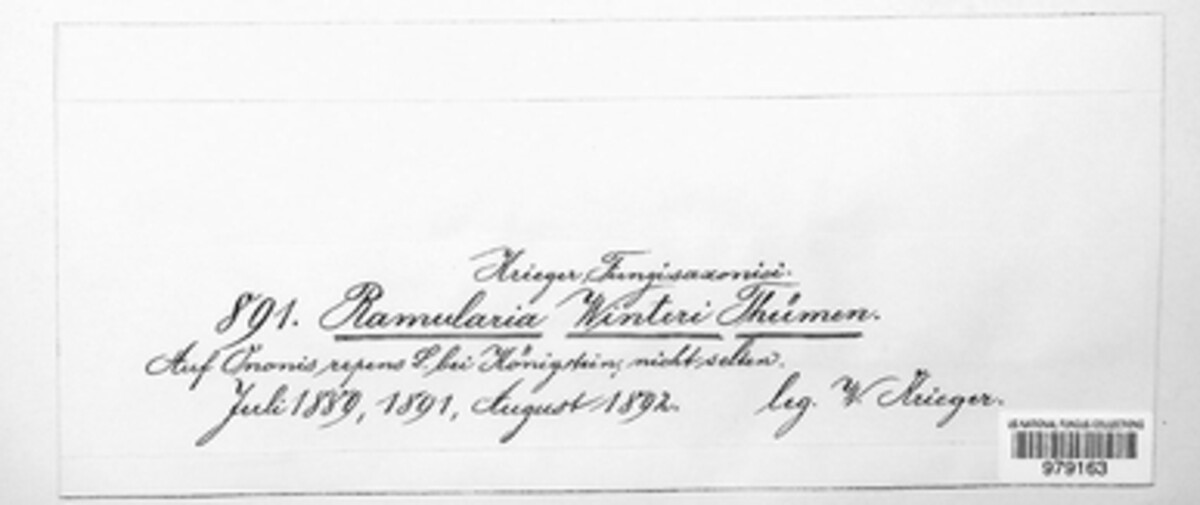 Krieger, Fungi saxonici.
891. Ramularia Winteri Thümen.
Auf Ononis repens L. bei Königstein, nicht selten.
Juli 1889, 1891, August 1892. leg. W. Krieger.
US NATIONAL FUNGUS COLLECTIONS
979163